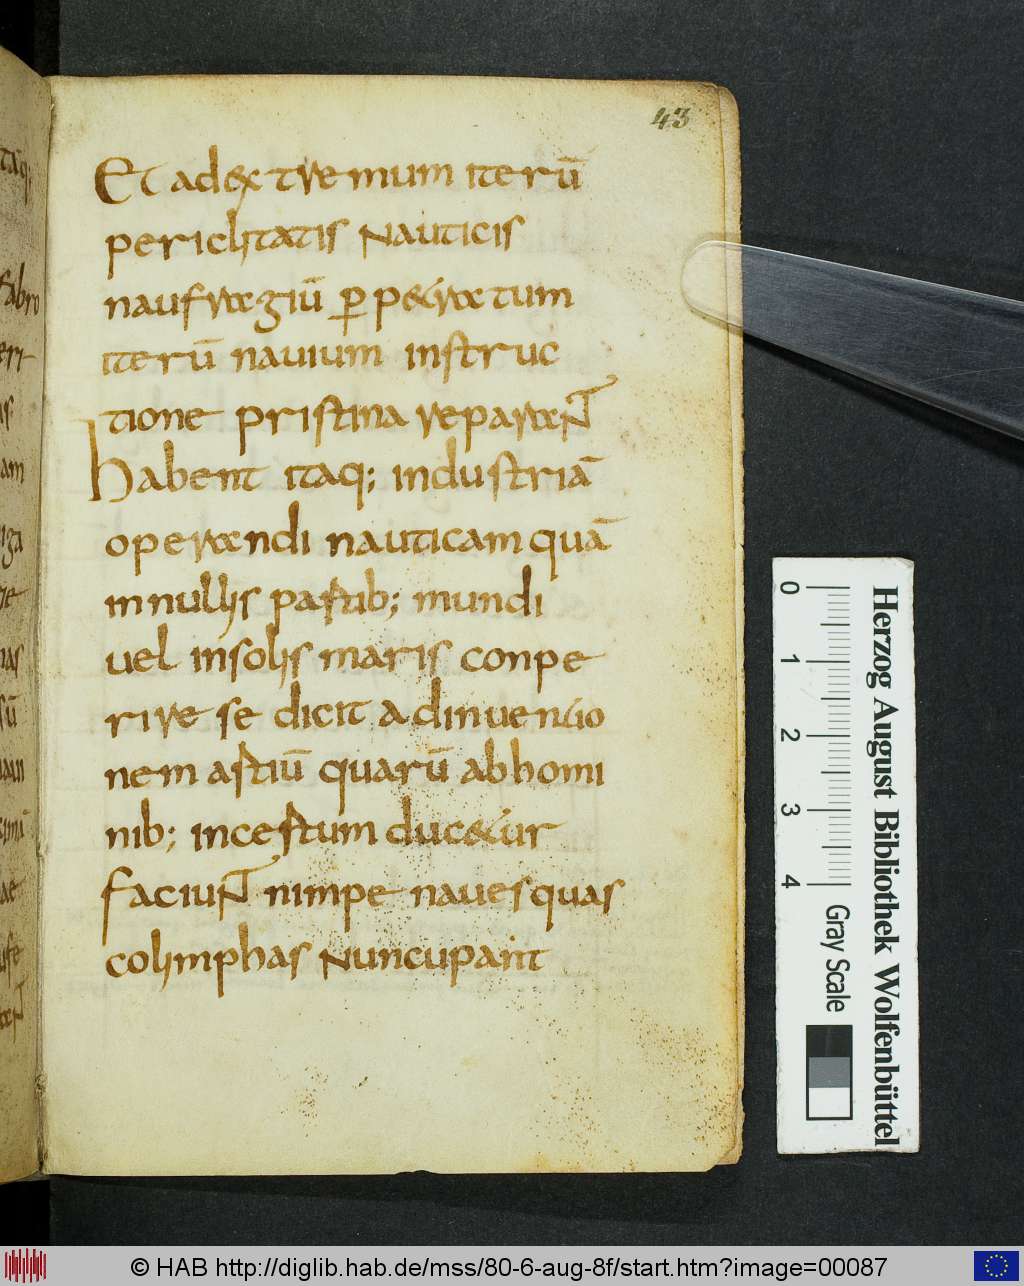 43
Et ad extremum iterū
periclitatis nauticis
naufragiū ꝑ pe&ratum
iterū nauium instruc
tione pristina reparant
habent itaq; industriā
operandi nauticam quā
in nullis pastib; mundi
uel insolis maris conpe
rire se dicit adinuencio
nem astiū quarū ab homi
nib; incestum duc&ur
faciunt nimpe naues quas
colimphas nuncupant
Herzog August Bibliothek Wolfenbüttel
0 1 2 3 4
Gray Scale
© HAB http://diglib.hab.de/mss/80-6-aug-8f/start.htm?image=00087